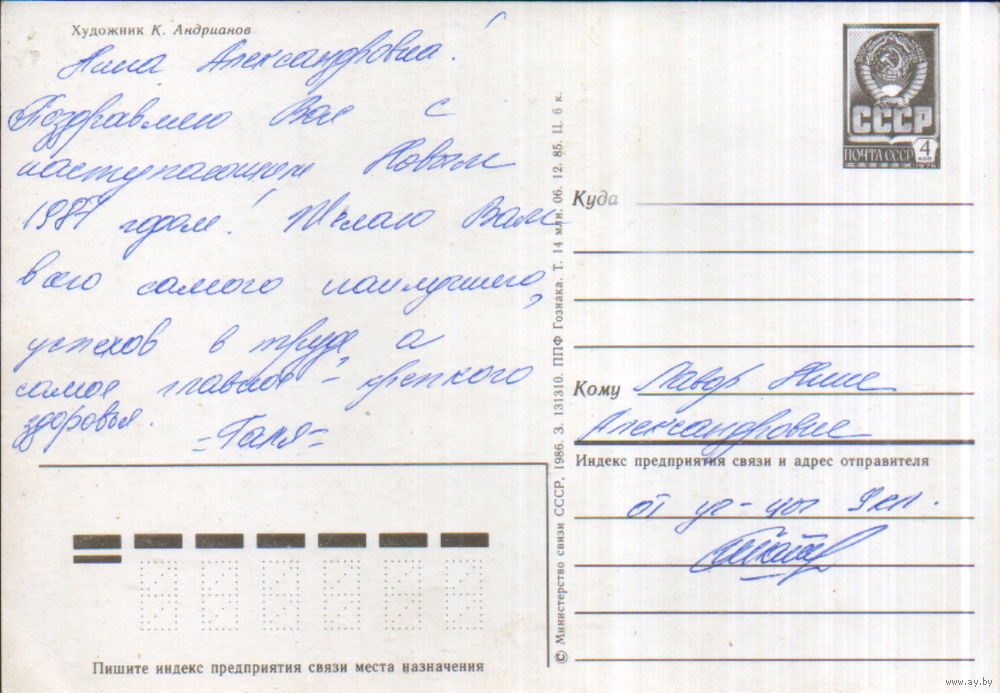 Художник К. Андрианов
Нина Александровна!
Поздравляю Вас с
наступающим Новым
1987 годом! Желаю Вам
всего самого наилучшего,
успехов в труде, а
самое главное – крепкого
здоровья.
-Галя-
СССР
ПОЧТА СССР 4 КОП
1976
Куда
Кому Лавор Нине
Александровне
Индекс предприятия связи и адрес отправителя
от уч-цы 9 кл.
Пишите индекс предприятия связи места назначения
© Министерство связи СССР, 1986. З. 131310. ППФ Гознака. Т. 14 млн. 06. 12. 85. Ц. 6 к.
www.ay.by